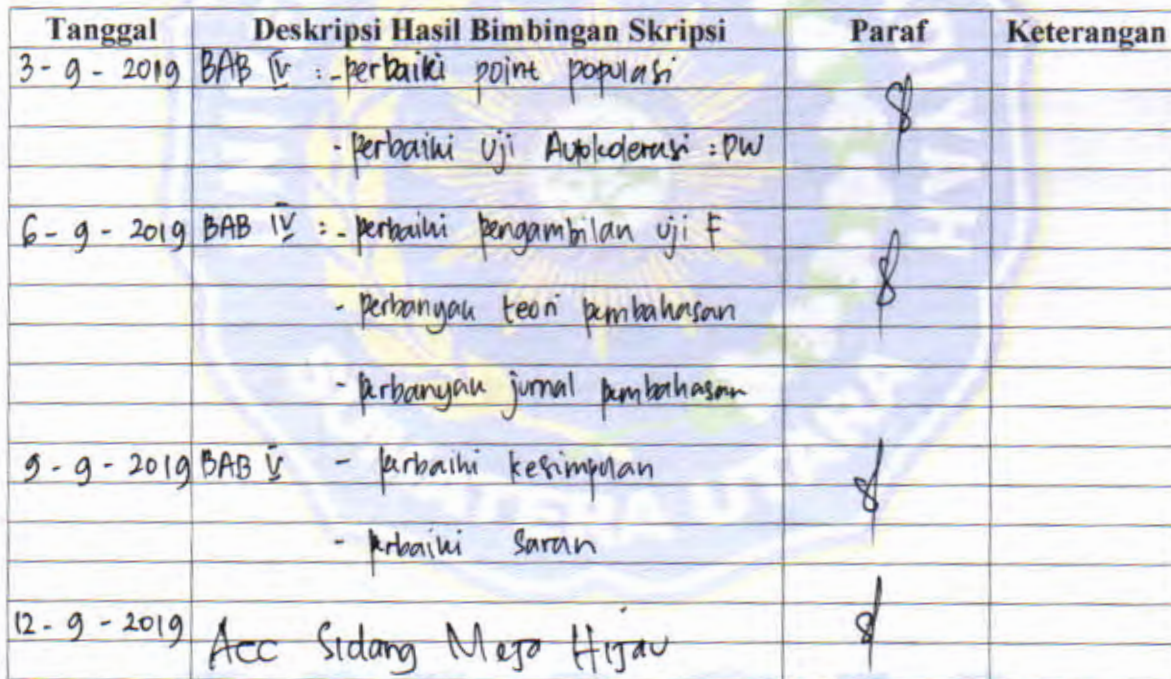 Tanggal Deskripsi Hasil Bimbingan Skripsi Paraf Keterangan
3 - 9 - 2019 BAB IV : - perbaiki point populasi
- perbaiki Uji Autokoderasi : DW
6 - 9 - 2019 BAB IV : - perbaiki pengambilan uji F
- perbanyak teori pembahasan
- perbanyak jurnal pembahasan
9 - 9 - 2019 BAB V - perbaiki kesimpulan
- perbaiki Saran
12 - 9 - 2019 Acc Sidang Meja Hijau